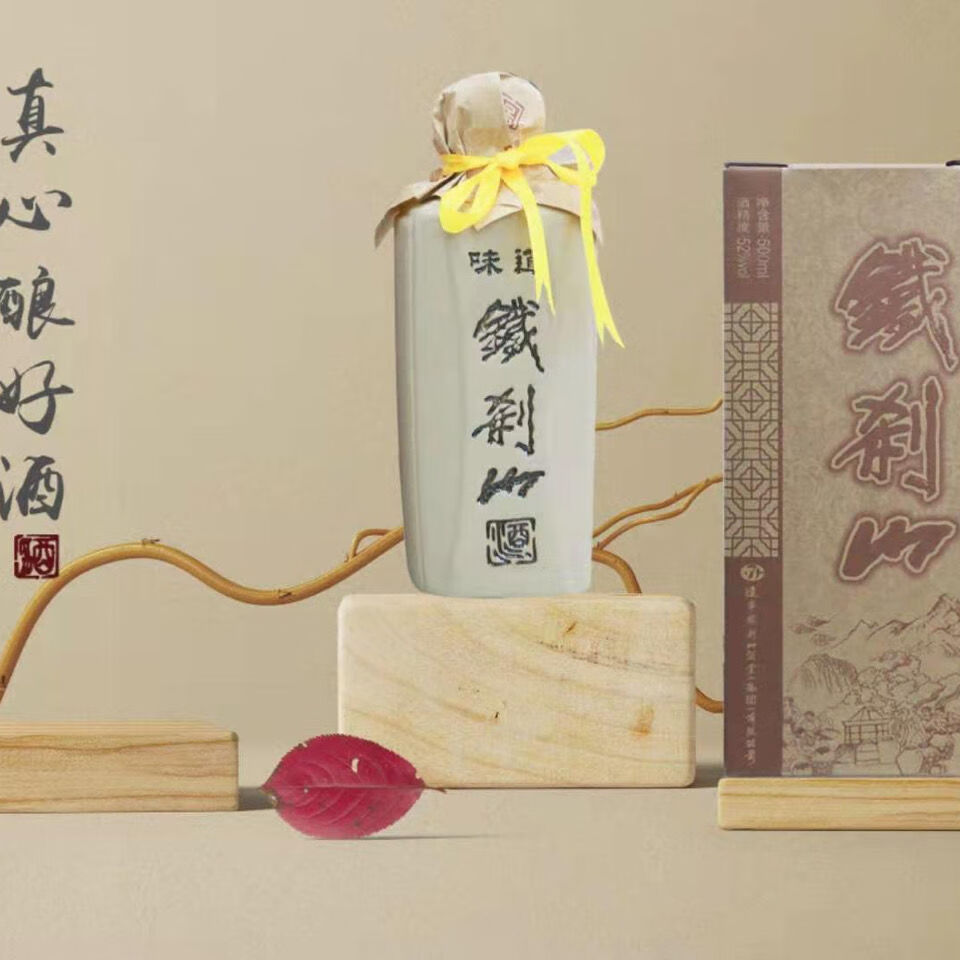 真心酿好酒
酒
味道
鐵刹山
酒
净含量:500ml
酒精度:52%vol
鐵刹山